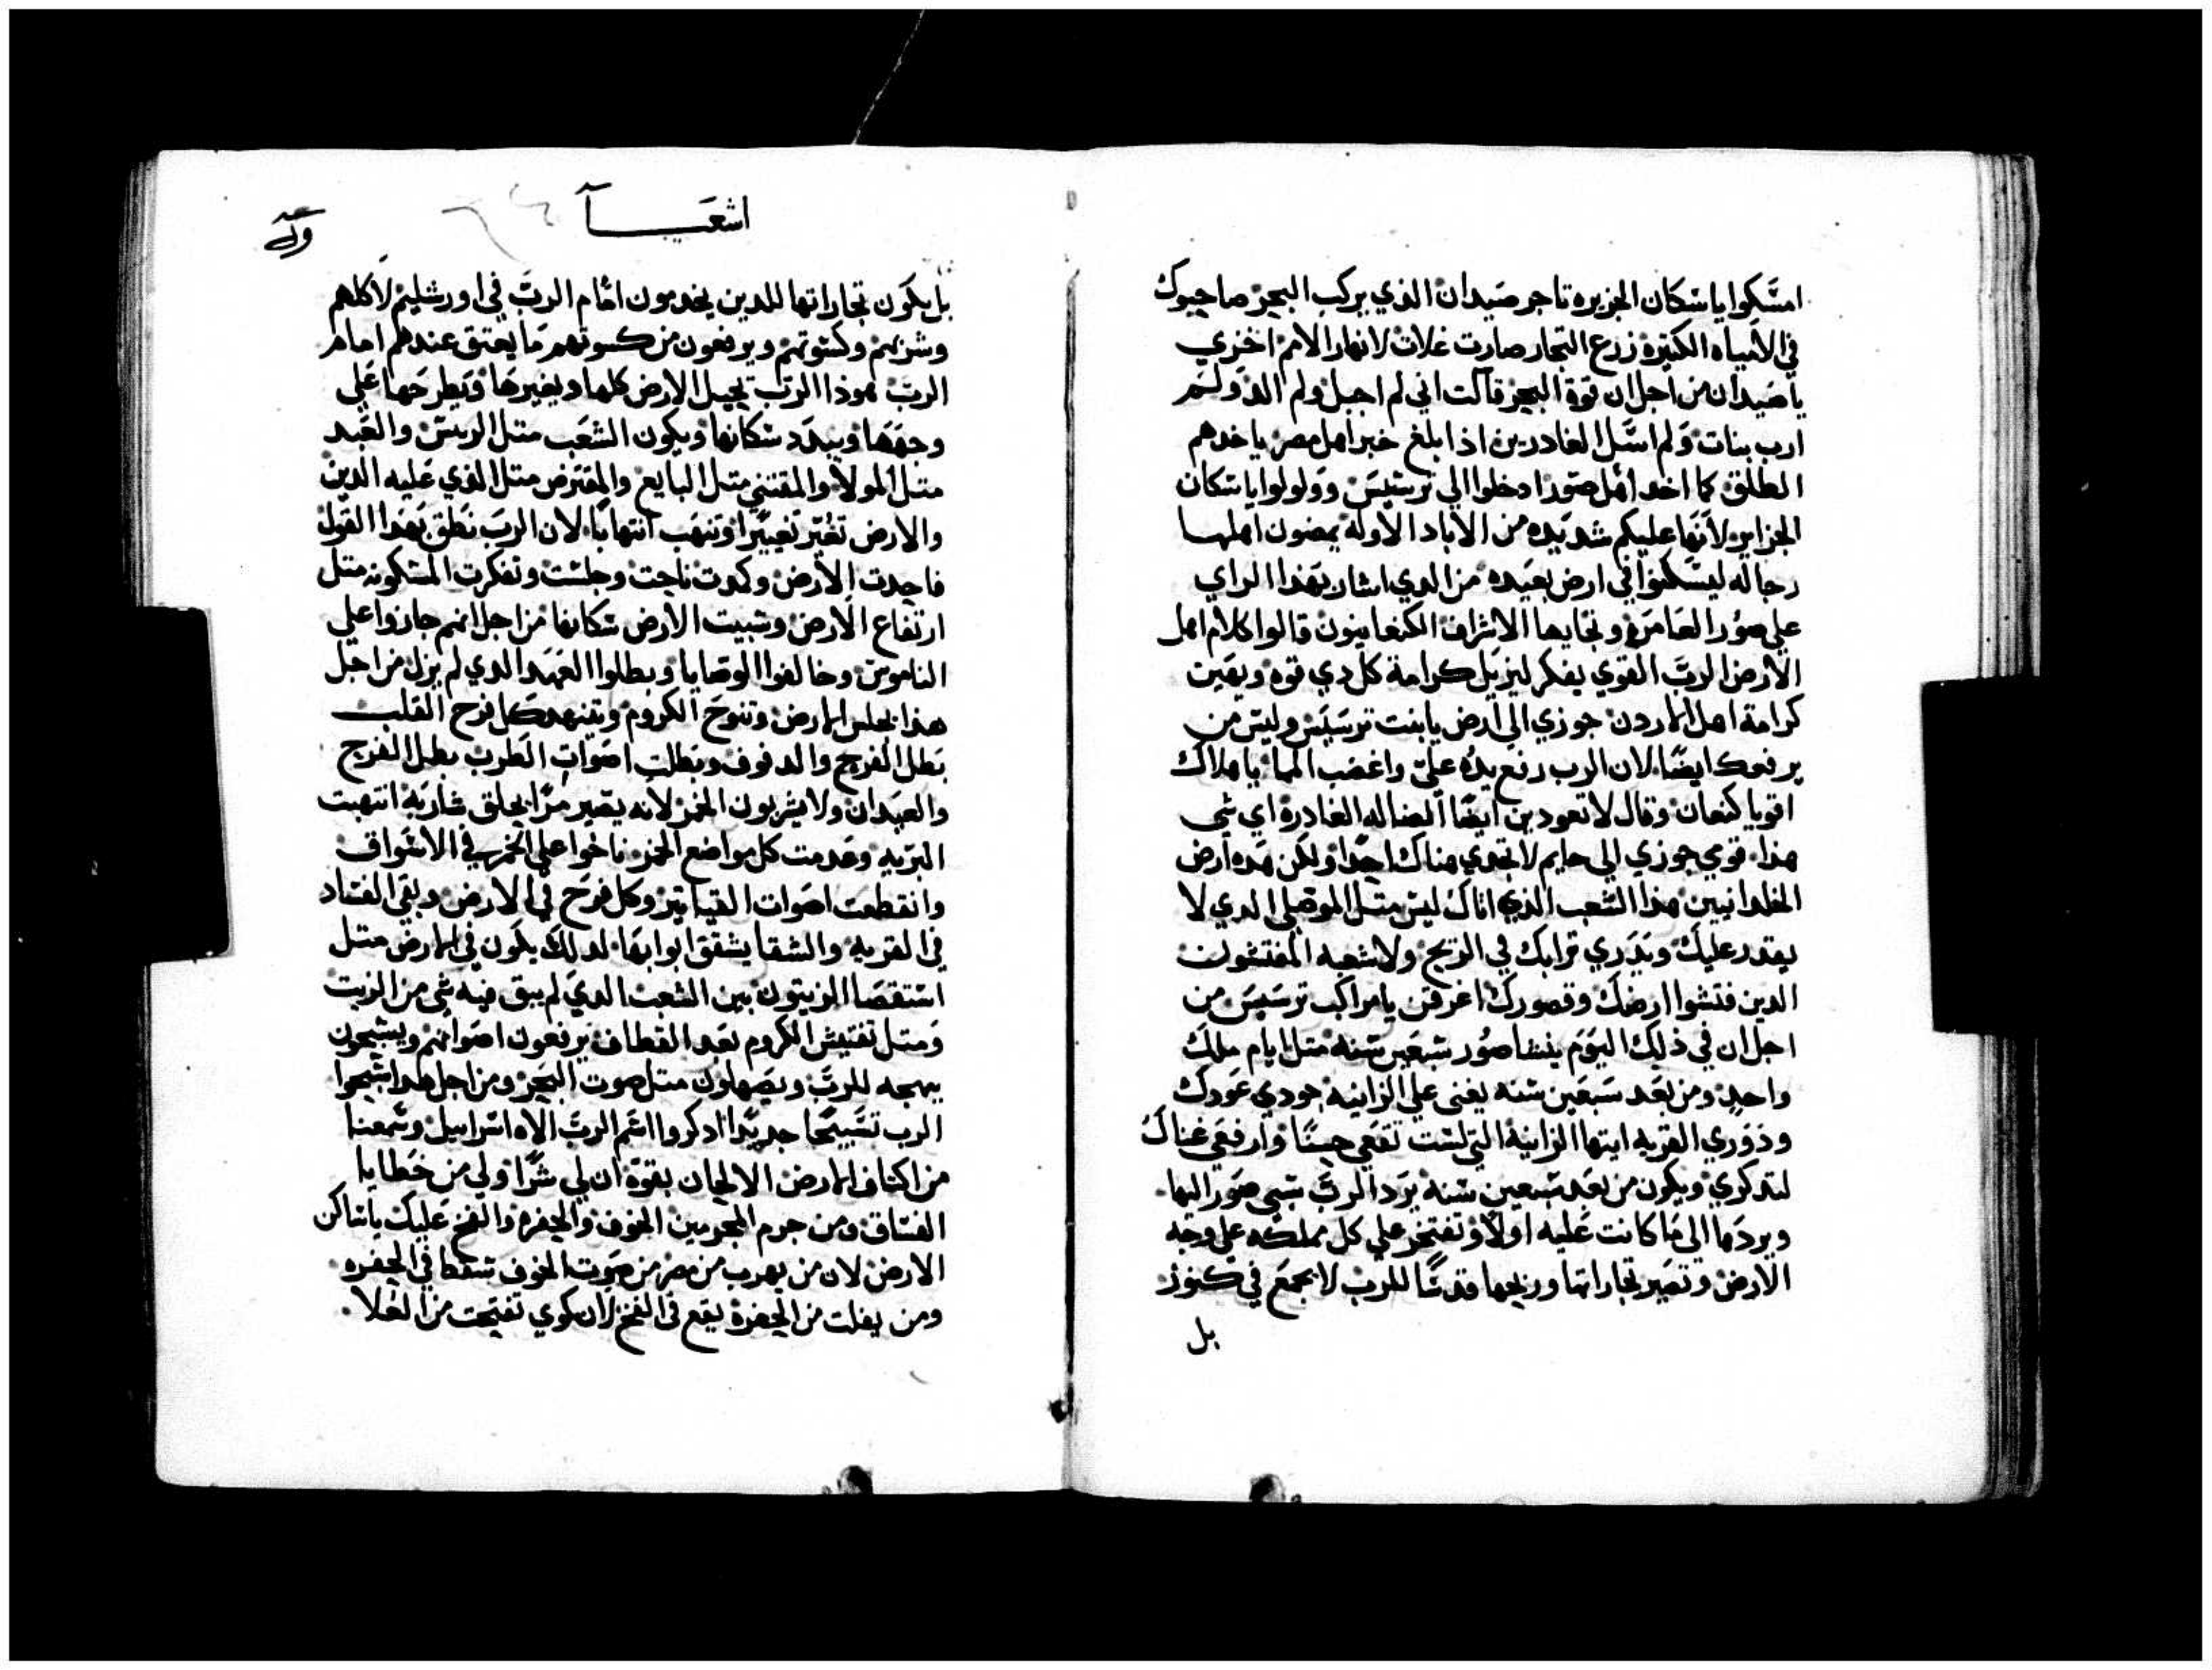 امسكوا ياسكان الجزيره تاجر صيدان الذي يركب البحر صاحبوك
في الامياه الكتيره زرع التجار صارت غلات لانهار الامم اخزي
يا صيدان من اجل ان قوة البحر قالت اني لم احبل ولم الد ولم
ارب بنات ولم اسل الغادرين اذا بلغ خبر اهل مصر ياخدهم
الطلق كما اخد اهل صور ادخلوا الي ترسيس وولولوا ياسكان
الجزاير لانها عليكم شديده من الاباد الاوله يمضون اهلها
رحاله ليسكنوا في ارض بعيده من الدي اشار بهدا الراي
علي صور العامره وتجايها الاشراف الكنعانيون قالوا كلام اهل
الارض الرب القوي يفكر ليزيل كرامة كل دي قوه ويهين
كرامة اهل الاردن جوزي الي ارض يابنت ترسيس وليس من
يرفعك ايضا لان الرب رفع يده علي واغضب الما ياملاك
اقويا كنعان وقال لا تعودين ايضا الضاله الغادره اي شي
هذا قومي جوزي الي حايم لا تجدي هناك احدا ولكن هده ارض
الخلدانيين هذا الشعب الذي اتاك ليس متل الموصلي الدي لا
يقدر عليك وتدري ترابك في الريح ولا شعبه المفتشون
الدين فتشوا ارضك وقصورك اغرقن يا مراكب ترسيس من
اجل ان في ذلك اليوم ينسا صور سبعين سنه متل ايام ملك
واحد ومن بعد سبعين سنه يغني علي الزانيه جودي عودك
ودوري القريه ايتها الزانيه التي لست تقعي حسنا وارفعي غناك
لتدكري ويكون من بعد سبعين سنه يرد الرب سبي صور اليها
ويردها الي ما كانت عليه اولا وتفتخر علي كل مملكه علي وجه
الارض وتصير تجاراتها وربحها قدسا للرب لا يجمع في كنوز
بل
اشعيا
بل يكون تجاراتها للدين يخدمون امام الرب في اورشليم لاكلهم
وشربهم وكسوتهم ويرفعون من كسوتهم ما يعتق عندهم امام
الرب هوذا الرب يحيل الارض كلها ويغيرها ويطرحها علي
وجهها ويبدد سكانها ويكون الشعب متل الريس والعبد
متل المولا والمقتني متل البايع والمقترض متل الذي عليه الدين
والارض تغير تغييرا وتنهب انتهابا لان الرب نطق بهدا القول
فاجدت الارض وكمدت ناحت وجلست وتفكرت المسكونه متل
ارتفاع الارض وسبيت الارض سكانها من اجل انهم جازوا علي
الناموس وخالفوا الوصايا وبطلوا العهد الدي لم يزل من اجل
هدا تجلس الارض وتنوح الكروم ويتنهد كل فرح القلب
بطل الفرح والدفوف وبطلت اصوات الطرب بطل الفرح
والعيدان ولا يشربون الخمر لانه يصير مرا بحلق شاربه انتهبت
البريه وعدمت كل مواضع الخمر ناحوا علي الخمر في الاسواق
وانقطعت اصوات القياتير وكل فرح في الارض وبقي الفساد
في القريه والشقا يشقق ابوابها لدلك يكون في الارض متل
استقصا الزيتون بين الشعب الدي لم يبق فيه شي من الزيت
ومتل تفتيش الكروم بعد القطاف يرفعون اصواتهم ويسبحون
ببهجه للرب ويصهلون متل صوت البحر ومن اجل هدا سبحوا
الرب تسبيحا جديدا ادكروا اسم الرب الاه اسراييل وسمعنا
من اكناف الارض الالحان بقوة ان لي شرا ولي من خطايا
الفساق ومن جرم المجرمين الخوف والحفره والفخ عليك ياساكن
الارض لان من يهرب من مصر من صوت الخوف سقط في الحفره
ومن يفلت من الحفره يقع في الفخ لان كوي تفتحت من العلا